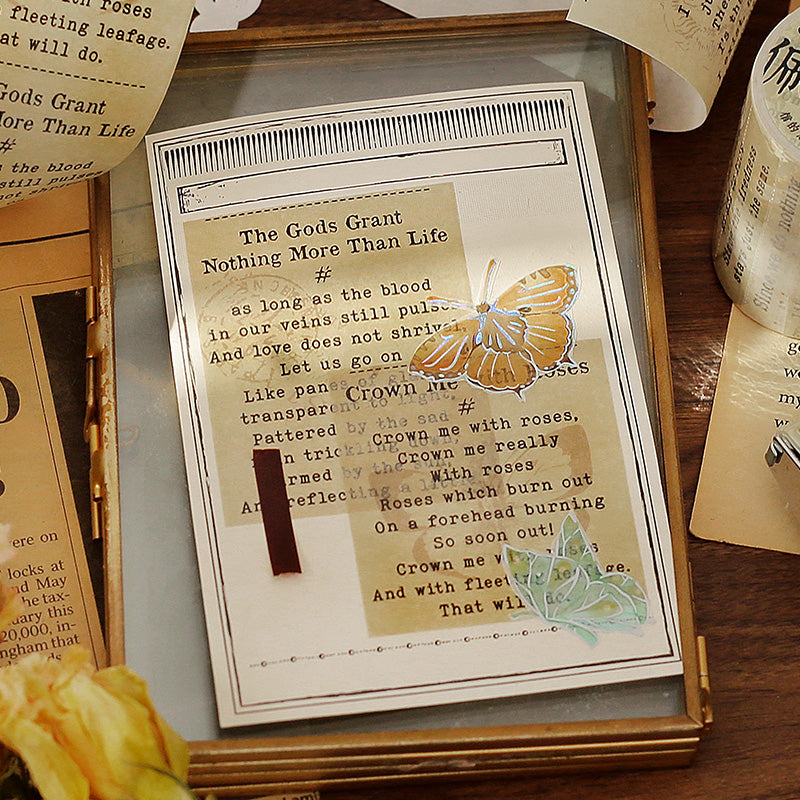 roses
fleeting leafage.
at will do.
Gods Grant
More Than Life
#
s the blood
still pulse
not
The Gods Grant
Nothing More Than Life
#
as long as the blood
in our veins still pulse
And love does not shrivel,
Let us go on
Like panes of
transparent to light,
Pattered by the sad
trickling down,
armed by the sun,
reflecting a
Crown Me Roses
#
Crown me with roses,
Crown me really
With roses
Roses which burn out
On a forehead burning
So soon out!
Crown me
And with fleeting leafage.
That will do.
ere on
locks at
nd May
he tax-
uary this
20,000, in-
ngham that
stay just the same.
Since we do nothing
go
we
my